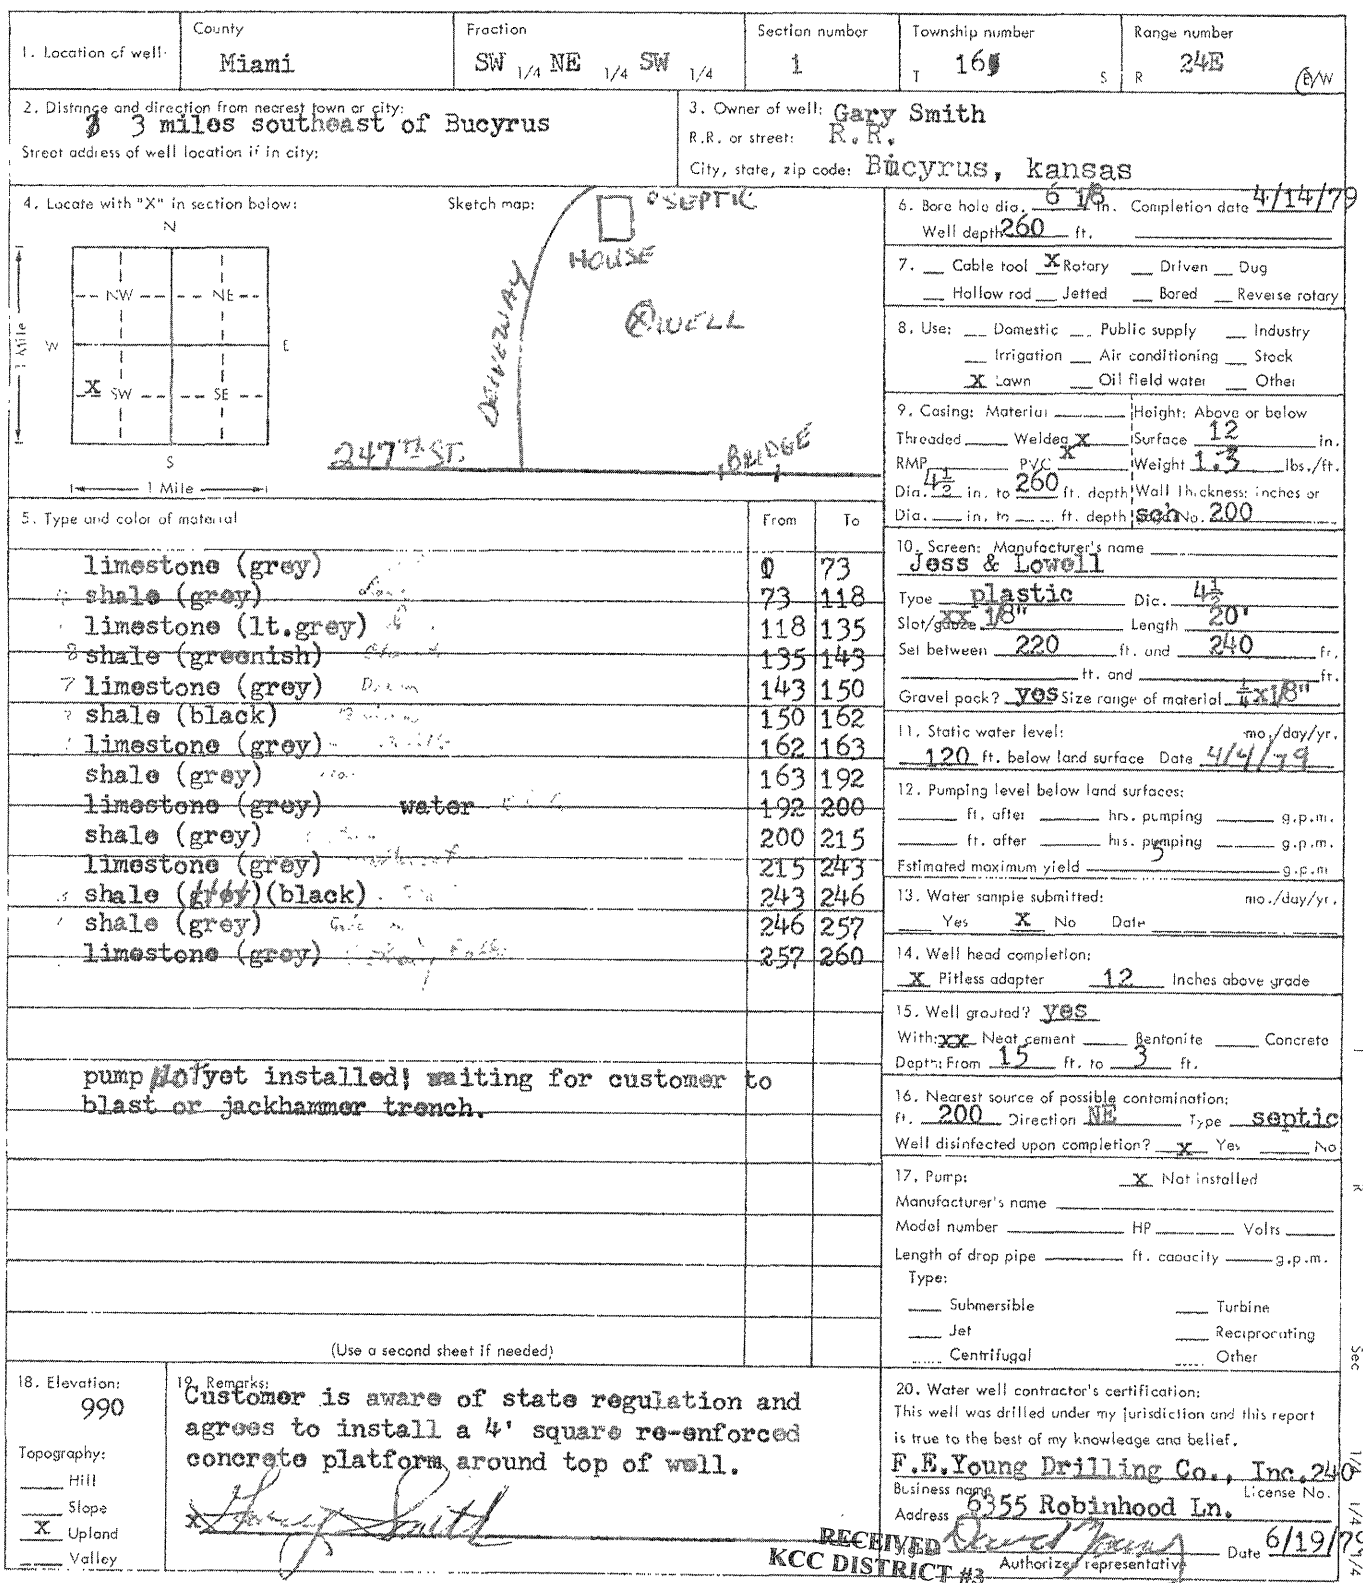 1. Location of well:
County
Miami
Fraction
SW 1/4 NE 1/4 SW 1/4
Section number
1
Township number
T 16 S
Range number
R 24E E/W
2. Distance and direction from nearest town or city:
3 miles southeast of Bucyrus
Street address of well location if in city:
3. Owner of well: Gary Smith
R.R. or street: R.R.
City, state, zip code: Bucyrus, kansas
4. Locate with "X" in section below:
N
NW NE
W E
X SW SE
S
1 Mile
1 Mile
Sketch map:
SEPTIC
HOUSE
WELL
DRIVEWAY
247TH ST.
BRIDGE
5. Type and color of material From To
limestone (grey) 0 73
shale (grey) 73 118
limestone (lt.grey) 118 135
8 shale (greenish) 135 143
7 limestone (grey) Drum 143 150
shale (black) 150 162
limestone (grey) 162 163
shale (grey) 163 192
limestone (grey) water 192 200
shale (grey) 200 215
limestone (grey) 215 243
shale (black) 243 246
shale (grey) 246 257
limestone (grey) 257 260
pump not yet installed; waiting for customer to
blast or jackhammer trench.
(Use a second sheet if needed)
6. Bore hole dia. 6 1/8 in. Completion date 4/14/79
Well depth 260 ft.
7. Cable tool X Rotary Driven Dug
Hollow rod Jetted Bored Reverse rotary
8. Use: Domestic Public supply Industry
Irrigation Air conditioning Stock
X Lawn Oil field water Other
9. Casing: Material Height: Above or below
Threaded Welded X Surface 12 in.
RMP PVC X Weight 1.3 lbs./ft.
Dia. 4½ in. to 260 ft. depth Wall thickness: inches or
Dia. in. to ft. depth sch No. 200
10. Screen: Manufacturer's name
Jess & Lowell
Type plastic Dia. 4½
Slot/gauze xx 1/8" Length 20'
Set between 220 ft. and 240 ft.
ft. and ft.
Gravel pack? yes Size range of material ¼x1/8"
11. Static water level: mo./day/yr.
120 ft. below land surface Date 4/4/79
12. Pumping level below land surfaces:
ft. after hrs. pumping g.p.m.
ft. after hrs. pumping g.p.m.
Estimated maximum yield 5 g.p.m.
13. Water sample submitted: mo./day/yr.
Yes X No Date
14. Well head completion:
X Pitless adapter 12 Inches above grade
15. Well grouted? yes
With: xx Neat cement Bentonite Concrete
Depth: From 15 ft. to 3 ft.
16. Nearest source of possible contamination:
ft. 200 Direction NE Type septic
Well disinfected upon completion? x Yes No
17. Pump: X Not installed
Manufacturer's name
Model number HP Volts
Length of drop pipe ft. capacity g.p.m.
Type:
Submersible Turbine
Jet Reciprocating
Centrifugal Other
18. Elevation:
990
Topography:
Hill
Slope
X Upland
Valley
19. Remarks:
Customer is aware of state regulation and
agrees to install a 4' square re-enforced
concrete platform around top of well.
x Gary Smith
20. Water well contractor's certification:
This well was drilled under my jurisdiction and this report
is true to the best of my knowledge and belief.
F.E.Young Drilling Co., Inc. 240
Business name License No.
Address 6355 Robinhood Ln.
David Young Date 6/19/79
Authorized representative
RECEIVED
KCC DISTRICT #3
R
Sec
1/4 1/4 1/4